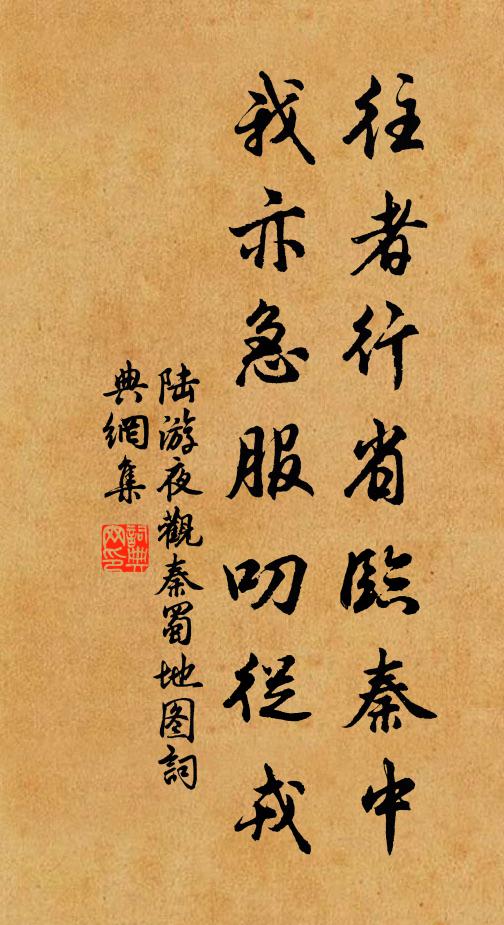 往者行省臨秦中
我亦急服叨從戎
陆游夜觀秦蜀地图詞
典網集
詞典网印